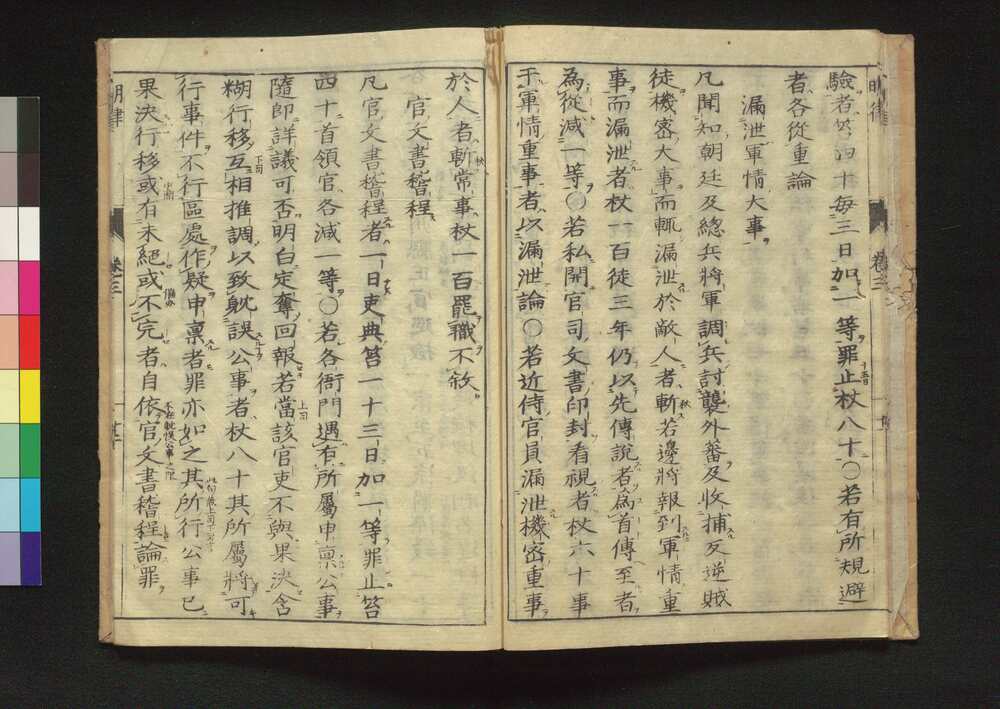 明律
卷三
驗者笞四十每三日加一等罪止杖八十○若有所規避
者各從重論
漏泄軍情大事
凡聞知朝廷及總兵將軍調兵討襲外番及收捕反逆賊
徒機密大事而輒漏泄於敵人者斬若邊將報到軍情重
事而漏泄者杖一百徒三年仍以先傳說者為首傳至者
為從減一等○若私開官司文書印封看視者杖六十事
干軍情重事者以漏泄論○若近侍官員漏泄機密重事
於人者斬常事杖一百罷職不敘
官文書稽程
凡官文書稽程者一日吏典笞一十三日加一等罪止笞
四十首領官各減一等○若各衙門遇有所屬申禀公事
隨即詳議可否明白定奪回報若當該官吏不與果決含
糊行移互相推調以致躭誤公事者杖八十其所屬將可
行事件不行區處作疑申禀者罪亦如之其所行公事已
果決行移或有未絕或不完者自依官文書稽程論罪
明律
卷三